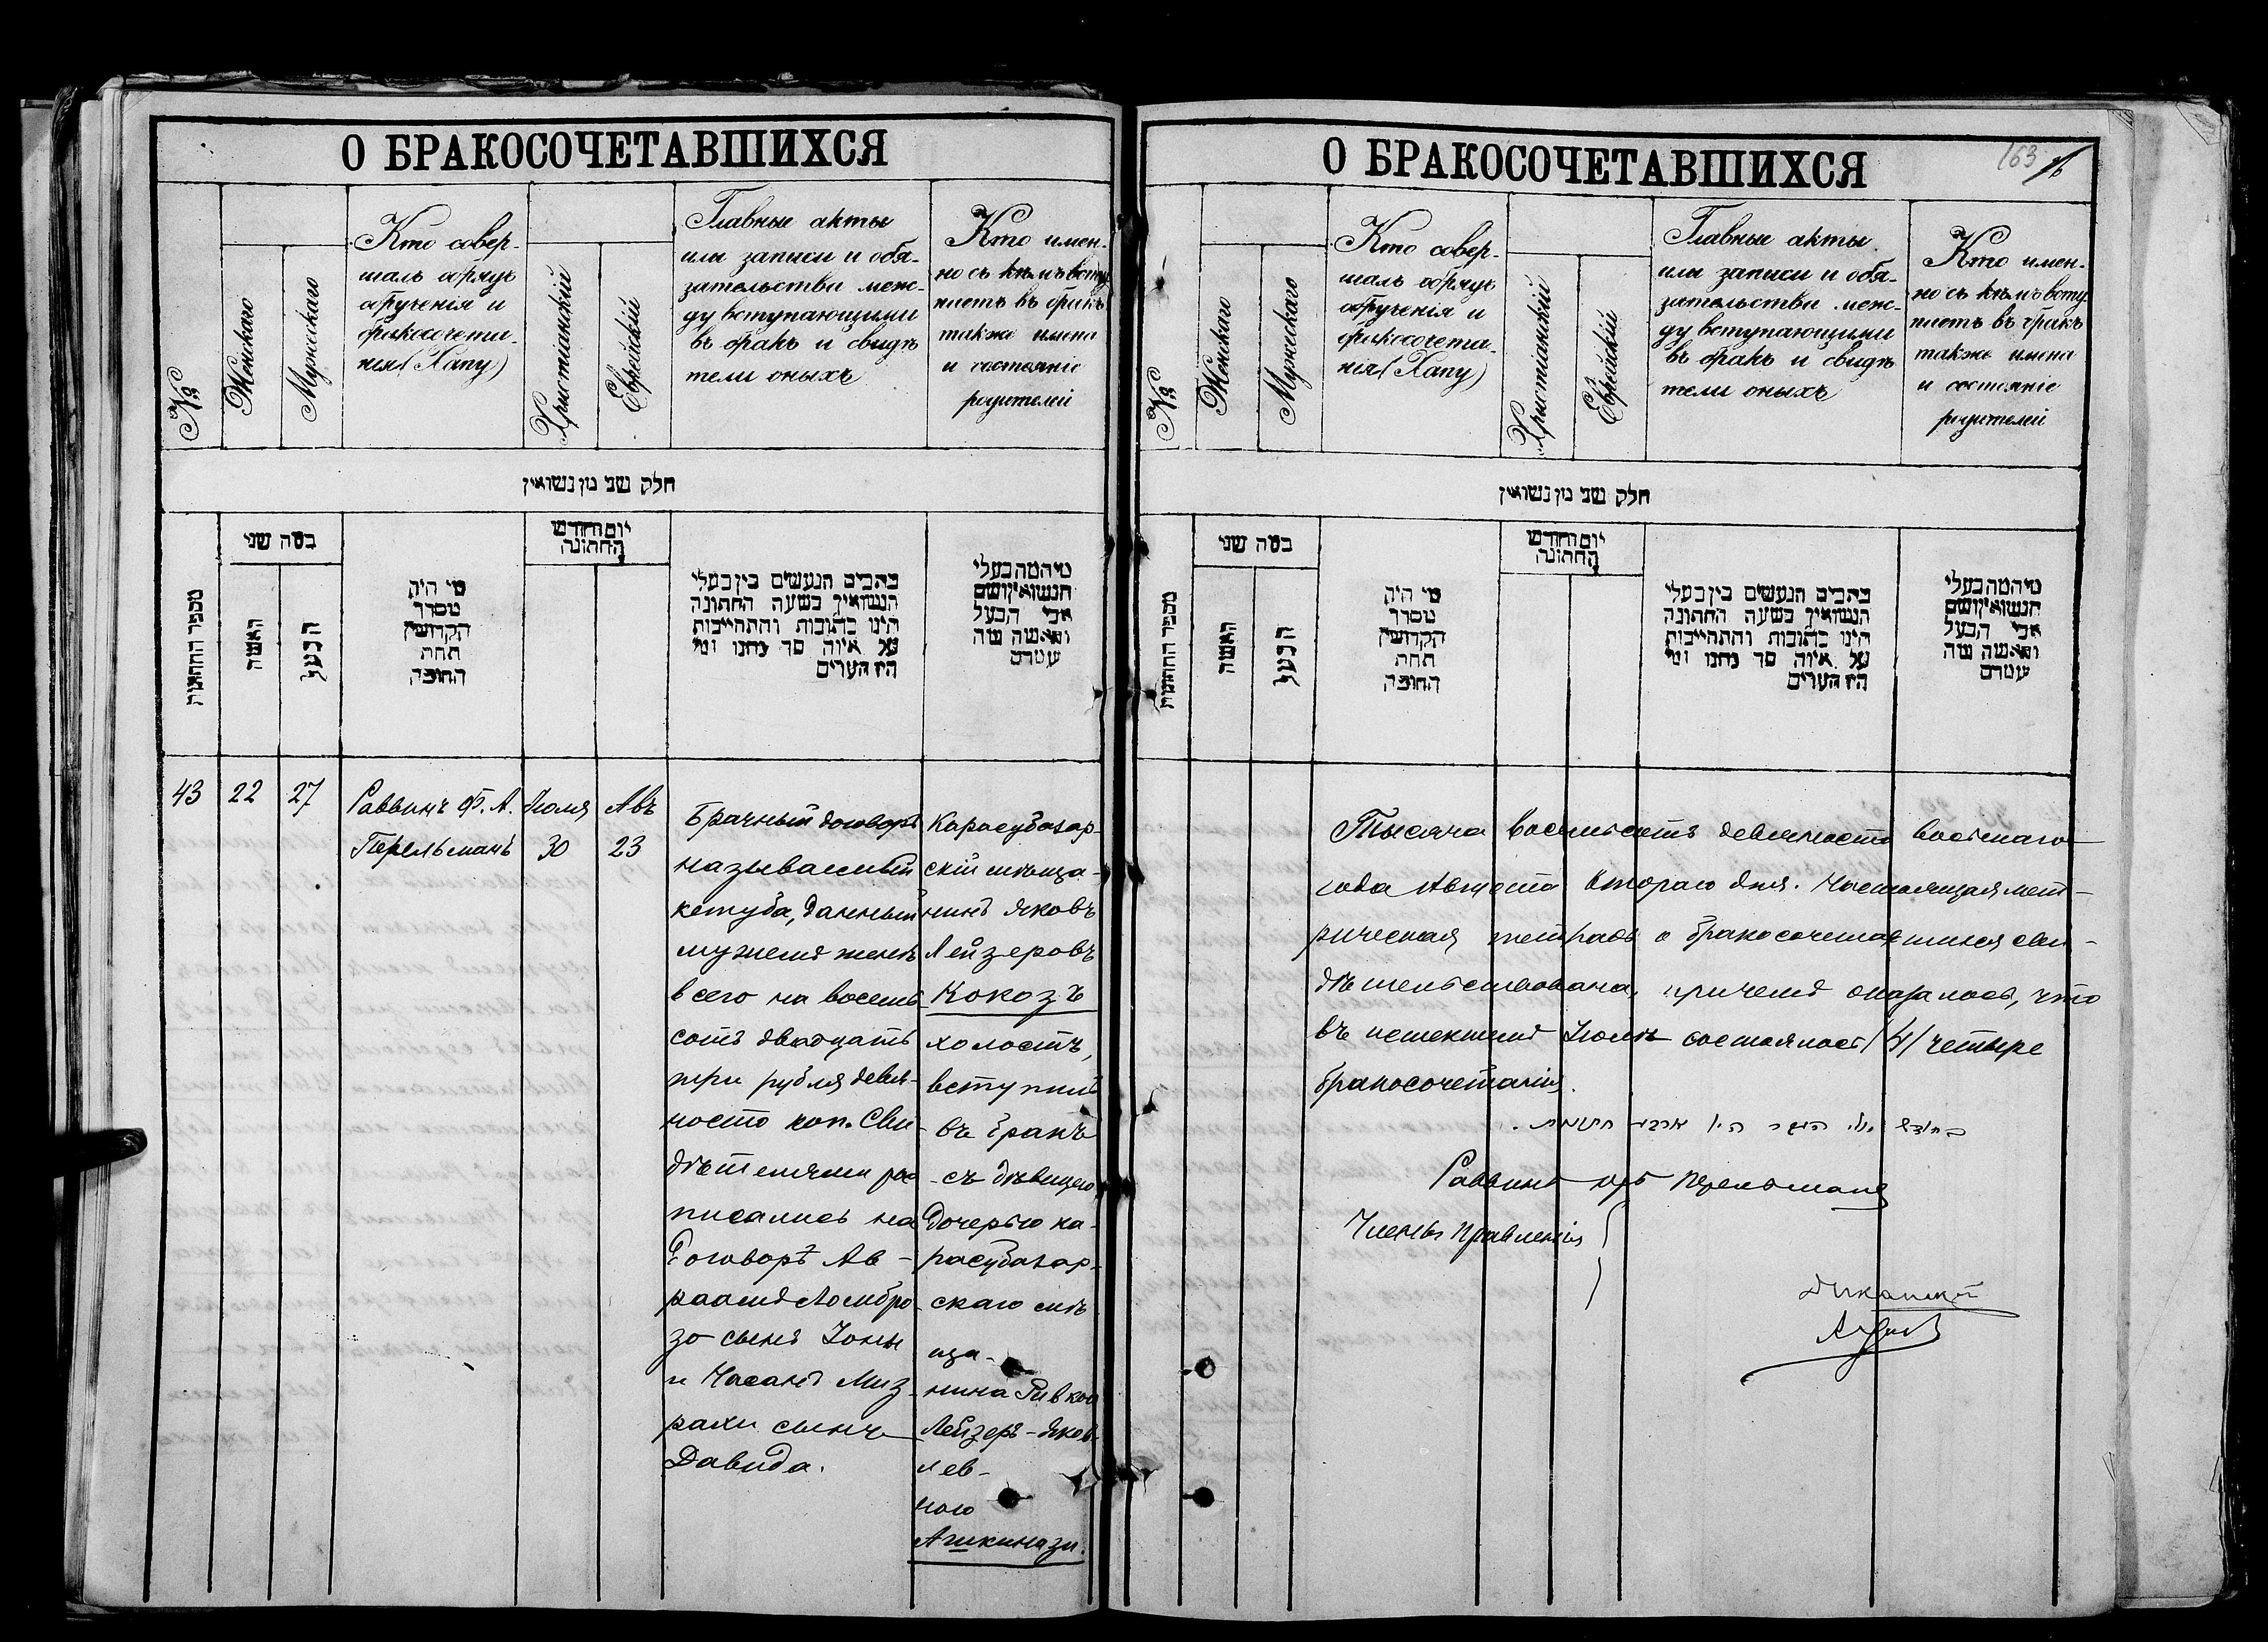 О БРАКОСОЧЕТАВШИХСЯ
№
Женскаго
Мужескаго
Кто совер-
шалъ обрядъ
обрученія и
бракосочета-
нія (Хапу)
Христіанскій
Еврейскій
Главные акты
или записи и обя-
зательства меж-
ду вступающими
въ бракъ и свидѣ
тели оныхъ
Кто имен-
но съ кѣмъ всту
паетъ въ бракъ
также имена
и состояніе
родителей
חלק שני מן נשואין
מספר החתונות
כמה שני
האשה
הבעל
מי היה
מסדר
הקדושין
תחת
החופה
יום וחודש
החתונה
כתבים הנעשים בין בעלי
הנשואין בשעה החתונה
היינו כתובות והתחייבות
על איזה סך נתנו ומי
היו העדים
מי המה בעלי
הנשואין ושם
אבי הבעל
והאשה מה
מעמדם
43
22
27
Раввинъ Ф. А.
Перельманъ
Іюля
30
Авъ
23
Брачный договоръ
называемый
кетуба, данный
мужемъ женѣ
всего на восемь
сотъ двадцать
три рубля девя-
носто коп. Сви-
дѣтелями рос
писались на
договорѣ Ав-
раамъ Ломбро-
зо сынъ Іоны
и Насанъ Миз-
рахи сынъ
Давида.
Карасубазар-
скій мѣща-
нинъ Яковъ
Лейзеровъ
Кокозъ
холостъ,
вступилъ
въ бракъ
съ дѣвицею,
дочерью ка-
расубазар-
скаго мѣ
ща-
нина Ривкою
Лейзеръ-Яков-
лев-
ною
Ашкинази.
О БРАКОСОЧЕТАВШИХСЯ
163
№
Женскаго
Мужескаго
Кто совер-
шалъ обрядъ
обрученія и
бракосочета-
нія (Хапу)
Христіанскій
Еврейскій
Главные акты
или записи и обя-
зательства меж-
ду вступающими
въ бракъ и свидѣ
тели оныхъ
Кто имен-
но съ кѣмъ всту
паетъ въ бракъ
также имена
и состояніе
родителей
חלק שני מן נשואין
מספר החתונות
כמה שני
האשה
הבעל
מי היה
מסדר
הקדושין
תחת
החופה
יום וחודש
החתונה
כתבים הנעשים בין בעלי
הנשואין בשעה החתונה
היינו כתובות והתחייבות
על איזה סך נתנו ומי
היו העדים
מי המה בעלי
הנשואין ושם
אבי הבעל
והאשה מה
מעמדם
Тысяча восемьсотъ девяносто восьмаго
года Августа втораго дня. Настоящая мет-
рическая тетрадь о бракосочетавшихся сви-
дѣтельствована, причемъ оказалось, что
въ истекшемъ Іюлѣ состоялось /4/ четыре
бракосочетанія.
בחודש יולי העבר היו ארבע חתונות.
Раввинъ Перельманъ
Члены Правленія